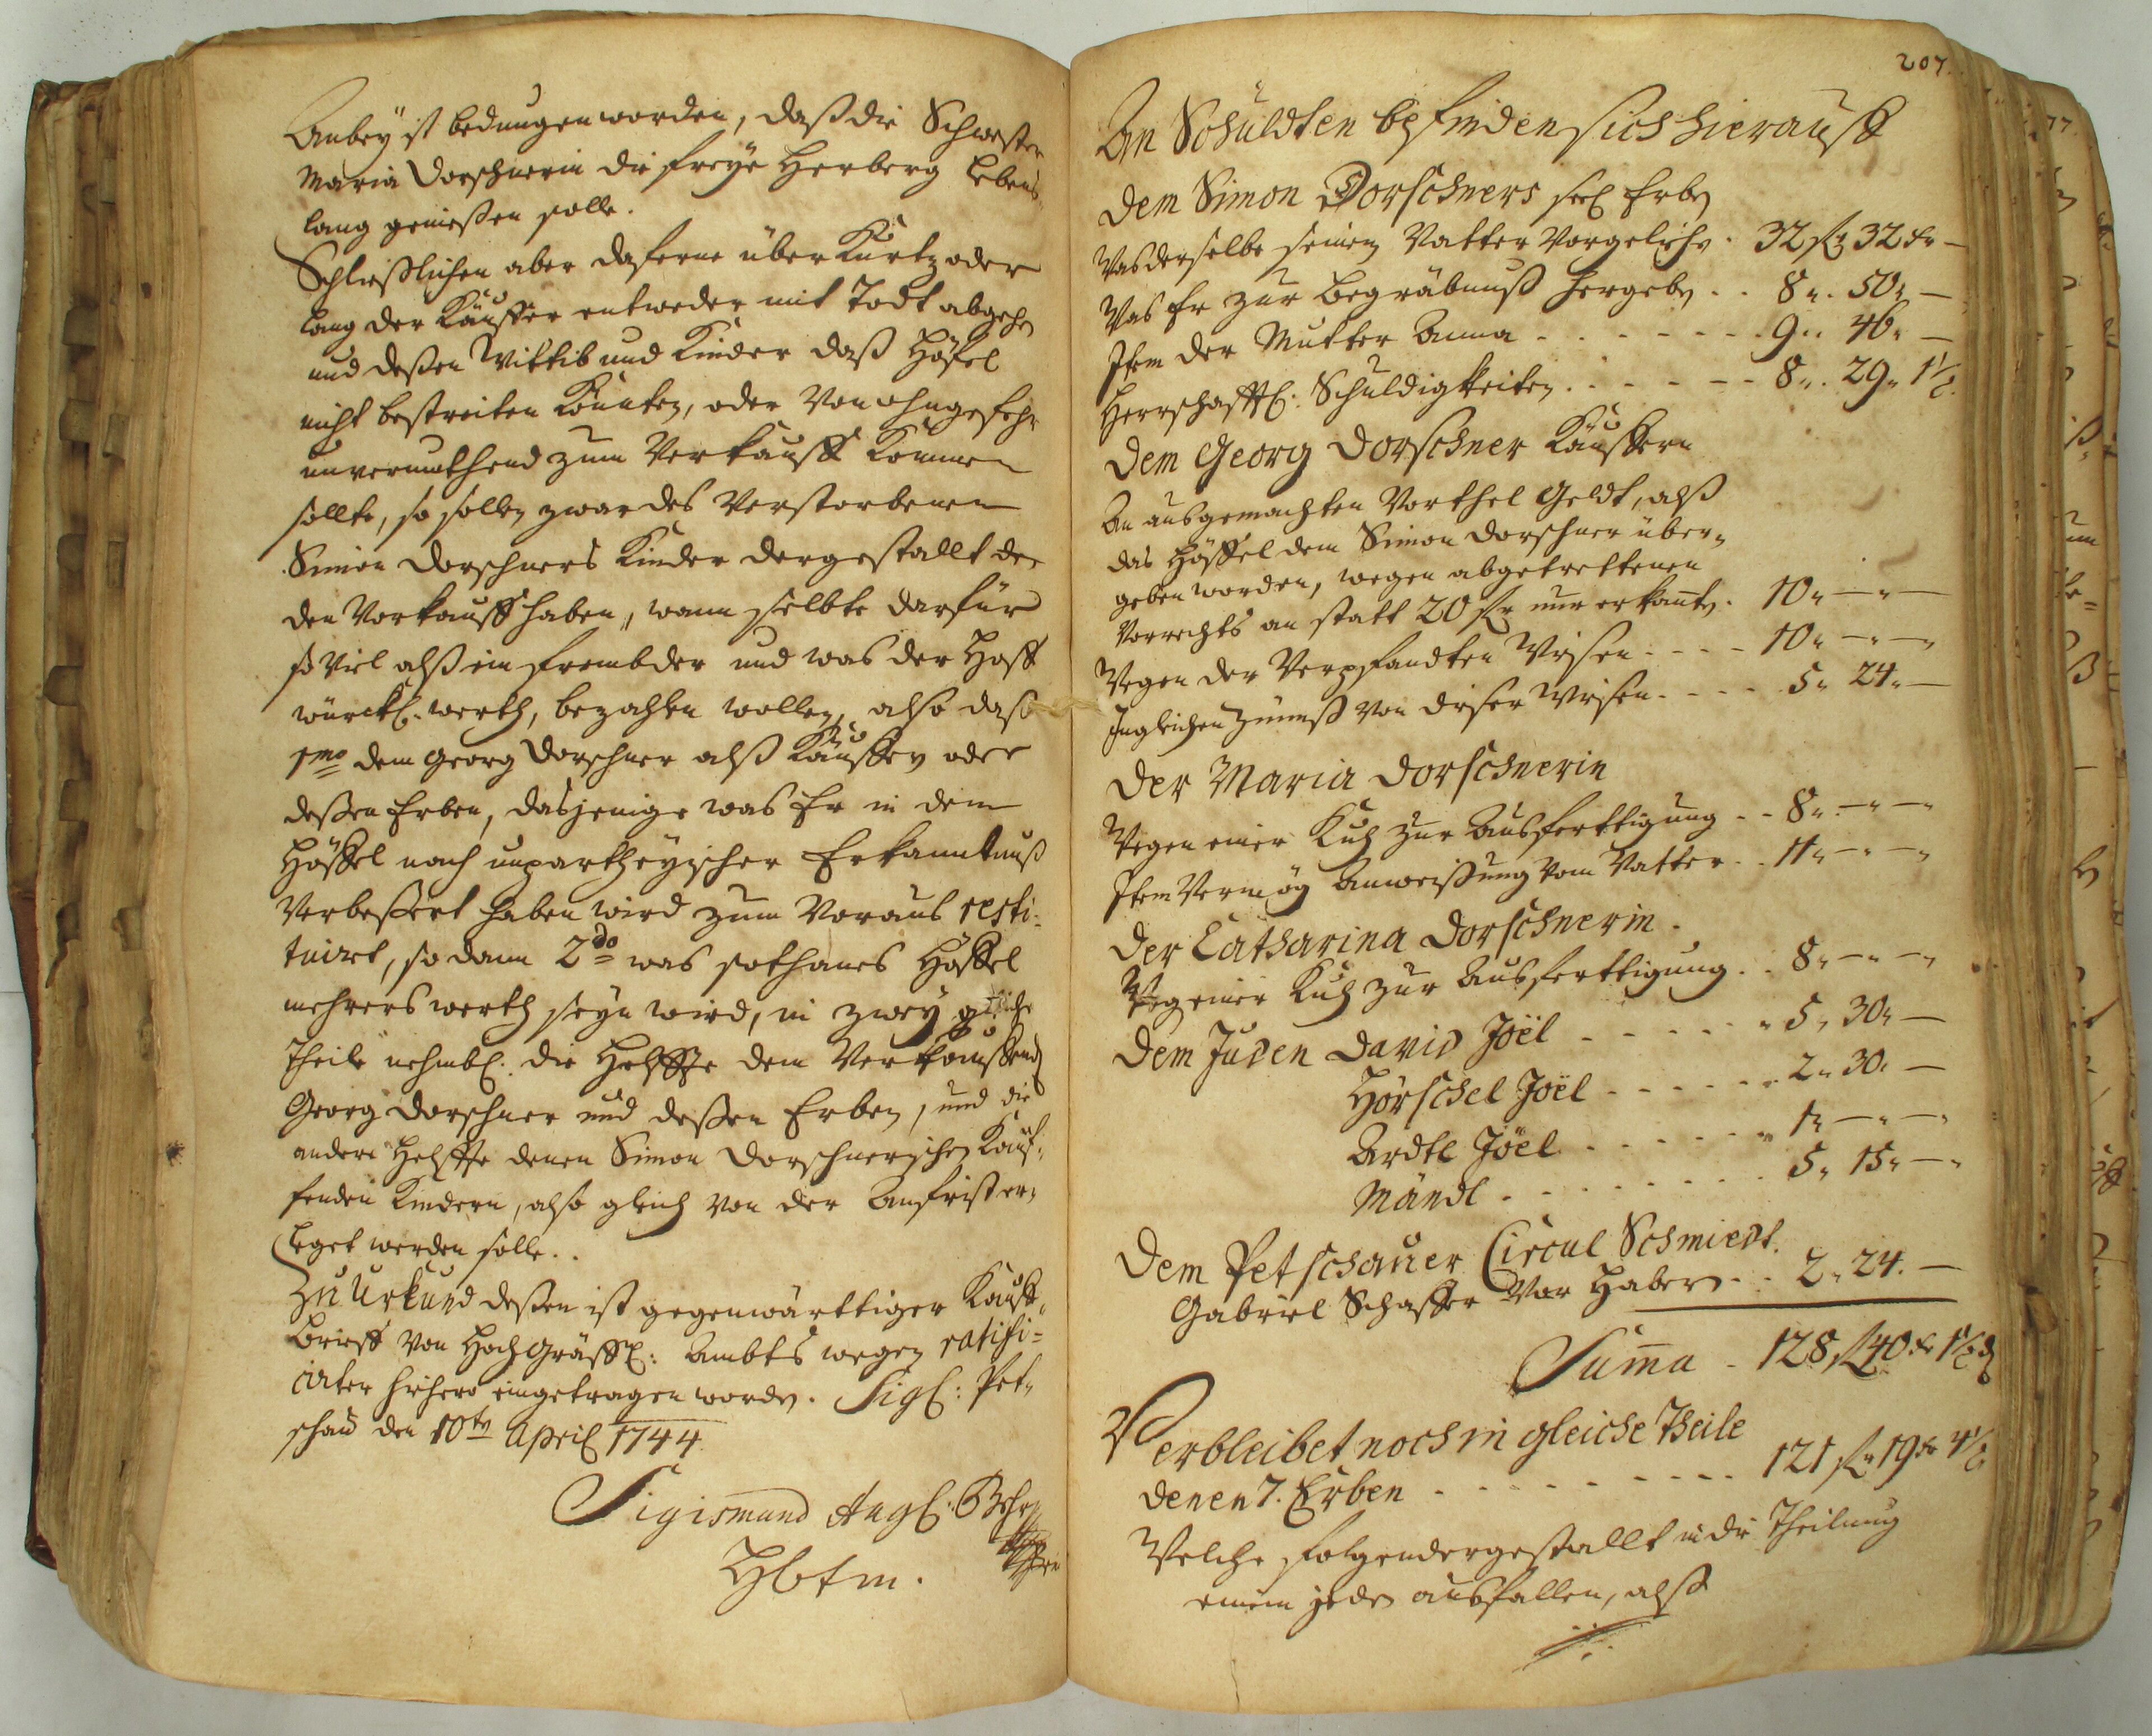 Anbey ist bedungen worden, daß die Schwester
Maria Dorschnerin die freye Herberg Lebens
lang genießen solle.
Schließlichen aber daferne über Kurtz oder
lang der Käuffer entweder mit Todt abgehen
und deßen Wittib und Kinder daß Höfel
nicht bestreiten Könnten, oder Von ohngefehr
unvermuthend zum Verkauff Kommen
sollte, so sollen zwar des Verstorbenen
Simon Dorschners Kinder dergestallt der
den Vorkauff haben, wann selbte darfür
so Viel alß ein frembder und was der Hoff
würckl. werth, bezahlen wollen, also daß
1mo dem Georg Dorschner alß Käuffern oder
deßen Erben, dasjenige was Er in dem
Höffel nach unpartheyischer Erkanntnuß
Verbeßert haben wird zum Voraus resti-
tuirt, so dann 2do was sothanes Höffel
mehrers werth seyn wird, in zwey gleiche
Theile nehmbl. die Helffte dem Verkauffenden
Georg Dorschner und deßen Erben, und die
andere Helffte denen Simon Dorschnerischen Kauf-
fenden Kindern, also gleich von der Anfrist er-
leget werden solle..
Zu Urkund deßen ist gegenwärttiger Kauff-
brieff Von Hoch Gräffl: Ambts wegen ratifi-
cirter hiehero eingetragen worden. Sigl: Pet-
schau den 10ten April 1744.
Sigismund Angl:
Hbtm.
207.
An Schuldten befinden sich hierauff
Dem Simon Dorschners seel Erben
Was derselbe seinem Vatter Vorgeliehen . 32 fl 32 kr —
Was Er zur Begräbnuß hergeben . . 8 „ 50 „ —
Item der Mutter Anna . . . . . . 9 „ 46 „ —
Herrschafftl: Schuldigkeiten . . . . . 8 „ 29 „ 1½
Dem Georg Dorschner Käuffern
An ausgemachten Vorthel Geldt, alß
das Höffel dem Simon Dorschner über-
geben worden, wegen abgetrettenen
Vorrechts an statt 20 fl nur erkannte . 10 „ — „ —
Wegen der Verpfandten Wiesen . . . . 10 „ — „ —
Ingleichen Zünnß von dieser Wiesen . . . . 5 „ 24 „ —
Der Maria Dorschnerin
Wegen einer Kuh zur Ausferttigung . . 8 „ — „ —
Item Vermög Anweißung vom Vatter . . 11 „ — „ —
Der Catharina Dorschnerin.
Weg einer Kuh zur Ausferttigung . . 8 „ — „ —
Dem Juden David Joël . . . . . . 5 „ 30 „ —
Hörschel Joël . . . . . . 2 „ 30 „ —
Ardtl Joël . . . . . . 1 „ — „ —
Mändl . . . . . . . . 5 „ 15 „ —
Dem Petschauer Circul Schmiedt.
Gabriel Schaffer Vor Habern . . 2 „ 24 . —
Summa . 128 fl 40 kr 1½ d
Verbleibet noch in gleiche Theile
denen 7. Erben . . . . . . . . 121 fl 19 kr 4½
Welche folgendergestallt in die Theilung
einem jeden ausfallen, alß